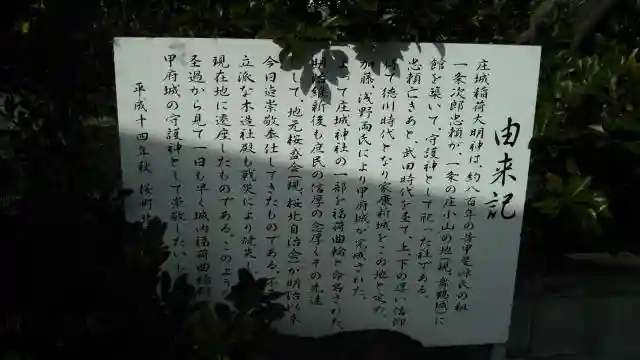 由来記
庄城稲荷大明神は、約八百年の昔甲斐源氏の祖
一条次郎忠頼が、一条の庄小山の地(現、舞鶴城)に
館を築いて、守護神として祀った社である。
忠頼亡きあと、武田時代を経て、上下の遠い信仰
けて徳川時代となり家康新城をこの地と定め、
加藤、浅野両氏により甲府城が完成された。
よって庄城神社の一部を稲荷曲輪と命名された
明治維新後も庶民の信厚の念厚くその先達
して、地元桜盛会(現、桜北自治会)が明治以来
今日迄崇敬奉仕してきたものである。不
立派な木造社殿も戦災により焼失
現在地に遷座したものである。このよう
圣過から見て一日も早く城内稲荷曲輪
甲府城の守護神として崇敬したい
平成十四年秋 桜町北